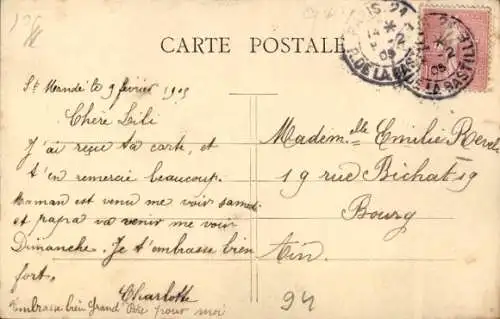 CARTE POSTALE
St Mandé le 9 février 1905
Chère Lili
J'ai reçu ta carte, et
t'en remercie beaucoup.
Maman est venu me voir samedi
et papa va venir me voir
Dimanche. Je t'embrasse bien
fort.
Charlotte
Embrasse bien Grand Père pour moi
Madem elle Emilie
19 rue Bichat 19
Bourg
Ain.
94
PARIS. 21
R. DE LA BASTILLE